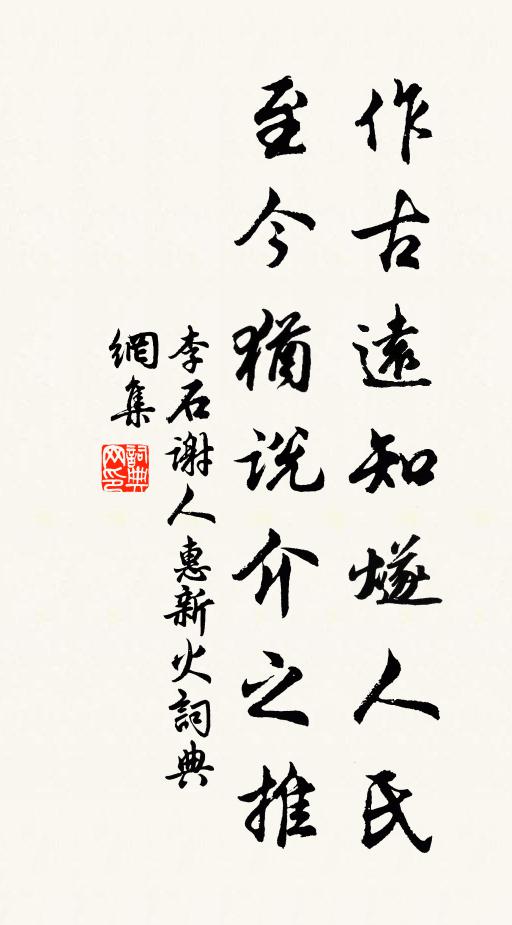 作古遠知燧人氏
至今猶説介之推
李石謝人惠新火詞典
網集
詞典
网印